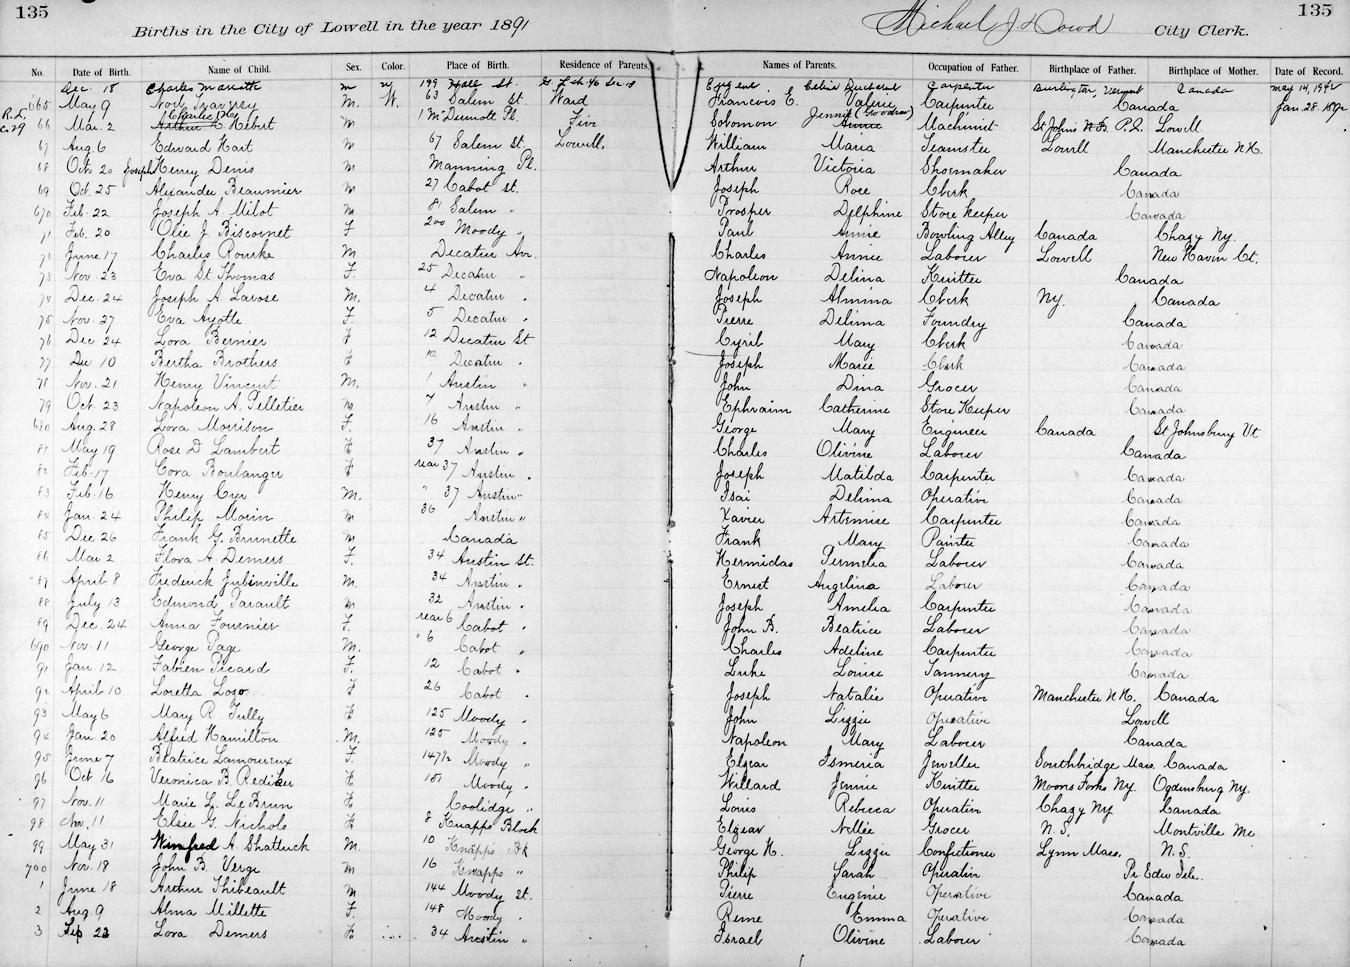 135
135
Births in the City of Lowell in the year 1891
Michael J. Dowd City Clerk.
No. Date of Birth. Name of Child. Sex. Color. Place of Birth. Residence of Parents. Names of Parents. Occupation of Father. Birthplace of Father. Birthplace of Mother. Date of Record.
Dec. 18 Charles Mariotte M W 199 Hall St. Eugene Celina Carpenter Burlington, Vermont Canada May 14, 1942
665 May 9 Noel M. W. 63 Salem St. Ward Francois E. Valerie Carpenter Canada Jan. 28. 1892
66 Mar. 2 Arthur Hebert M 1 McDermott Pl. Five Solomon Annie Jennie (Goodrow) Machinist St Johns N.B. P.Q. Lowell
67 Aug. 6 Edward Hart M 67 Salem St. Lowell. William Maria Teamster Lowell Manchester N.H.
68 Oct. 20 Joseph Henry Denis M Manning Pl. Arthur Victoria Shoemaker Canada
69 Oct. 25 Alexander Beaumier M 27 Cabot St. Joseph Rose Clerk Canada
670 Feb. 22 Joseph A. Milot M 81 Salem " Prosper Delphine Store Keeper Canada
71 Feb. 20 Olie J. Biscornet F 200 Moody " Paul Annie Bowling Alley Canada Chazy Ny.
72 June 17 Charles Rourke M Decatur Av. Charles Annie Laborer Lowell New Haven Ct.
73 Nov. 23 Eva St Thomas F. 25 Decatur " Napoleon Delina Knitter Canada
74 Dec. 24 Joseph A. Larose M. 4 Decatur " Joseph Almina Clerk Ny. Canada
75 Nov. 27 Eva Ayotte F. 5 Decatur " Pierre Delima Foundry Canada
76 Dec 24 Lora Bernier F 12 Decatur St Cyril Mary Clerk Canada
77 Dec 10 Bertha Brothers F 12 Decatur " Joseph Marie Clerk Canada
78 Nov. 21 Henry Vincent M. 1 Austin " John Dina Grocer Canada
79 Oct. 23 Napoleon A. Pelletier M 7 Austin " Ephraim Catherine Store Keeper Canada
680 Aug. 28 Lora Morrison F. 16 Austin " George Mary Engineer Canada St Johnsbury Vt
81 May 19 Rose D Lambert F 37 Austin " Charles Olivine Laborer Canada
82 Feb. 17 Cora Boulanger F rear 37 Austin " Joseph Matilda Carpenter Canada
83 Feb. 16 Henry Cyr M. " 37 Austin " Isai Delima Operative Canada
84 Jan. 24 Philip Morin M 36 Austin " Xavier Artemise Carpenter Canada
85 Dec 26 Frank G. Brunette M Canada Frank Mary Painter Canada
86 Mar 2 Flora A Demers F. 34 Austin St. Hermidas Permelia Laborer Canada
87 April 8 Frederick Jubinville M. 34 Austin " Ernest Angelina Laborer Canada
88 July 13 Edmond Parault M 32 Austin " Joseph Amelia Carpenter Canada
89 Dec. 24 Anna Fournier F. rear 6 Cabot " John B. Beatrice Laborer Canada
690 Nov. 11 George Page M. " 6 Cabot " Charles Adeline Carpenter Canada
91 Jan. 12 Fabien Picard F. 12 Cabot " Luke Louise Tannery Canada
92 April 10 Loretta Lozo F 26 Cabot " Joseph Natalie Operative Manchester N.H. Canada
93 May 6 Mary R Tully F 125 Moody " John Lizzie Operative Lowell
94 Jan 20 Alfred Hamilton M. 125 Moody " Napoleon Mary Laborer Canada
95 June 7 Beatrice Lamoureux F. 147½ Moody " Elzear Ismeria Jeweller Southbridge Mass. Canada
96 Oct 16 Veronica B Rediker F 151 Moody " Willard Jennie Knitter Moors Forks Ny. Ogdensburg Ny.
97 Nov. 11 Marie L. LeBrun F Coolidge " Louis Rebecca Operative Chazy Ny Canada
98 Nov. 11 Elsie G. Nichols F 8 Knapps Block Elzear Nellie Grocer N.S. Montville Me
99 May 31 Winifred A Shattuck M. 10 Knapps Bk George H. Lizzie Confectioner Lynn Mass. N.S.
700 Nov. 18 John B. Verge M 16 Knapps " Philip Sarah Operative Pr Edw Isle.
1 June 18 Arthur Thibeault M 144 Moody St. Pierre Eugenie Operative Canada
2 Aug. 9 Alma Millette F. 148 Moody " Rene Emma Operative Canada
3 Sep 22 Lora Demers F 34 Austin " Israel Olivine Laborer Canada